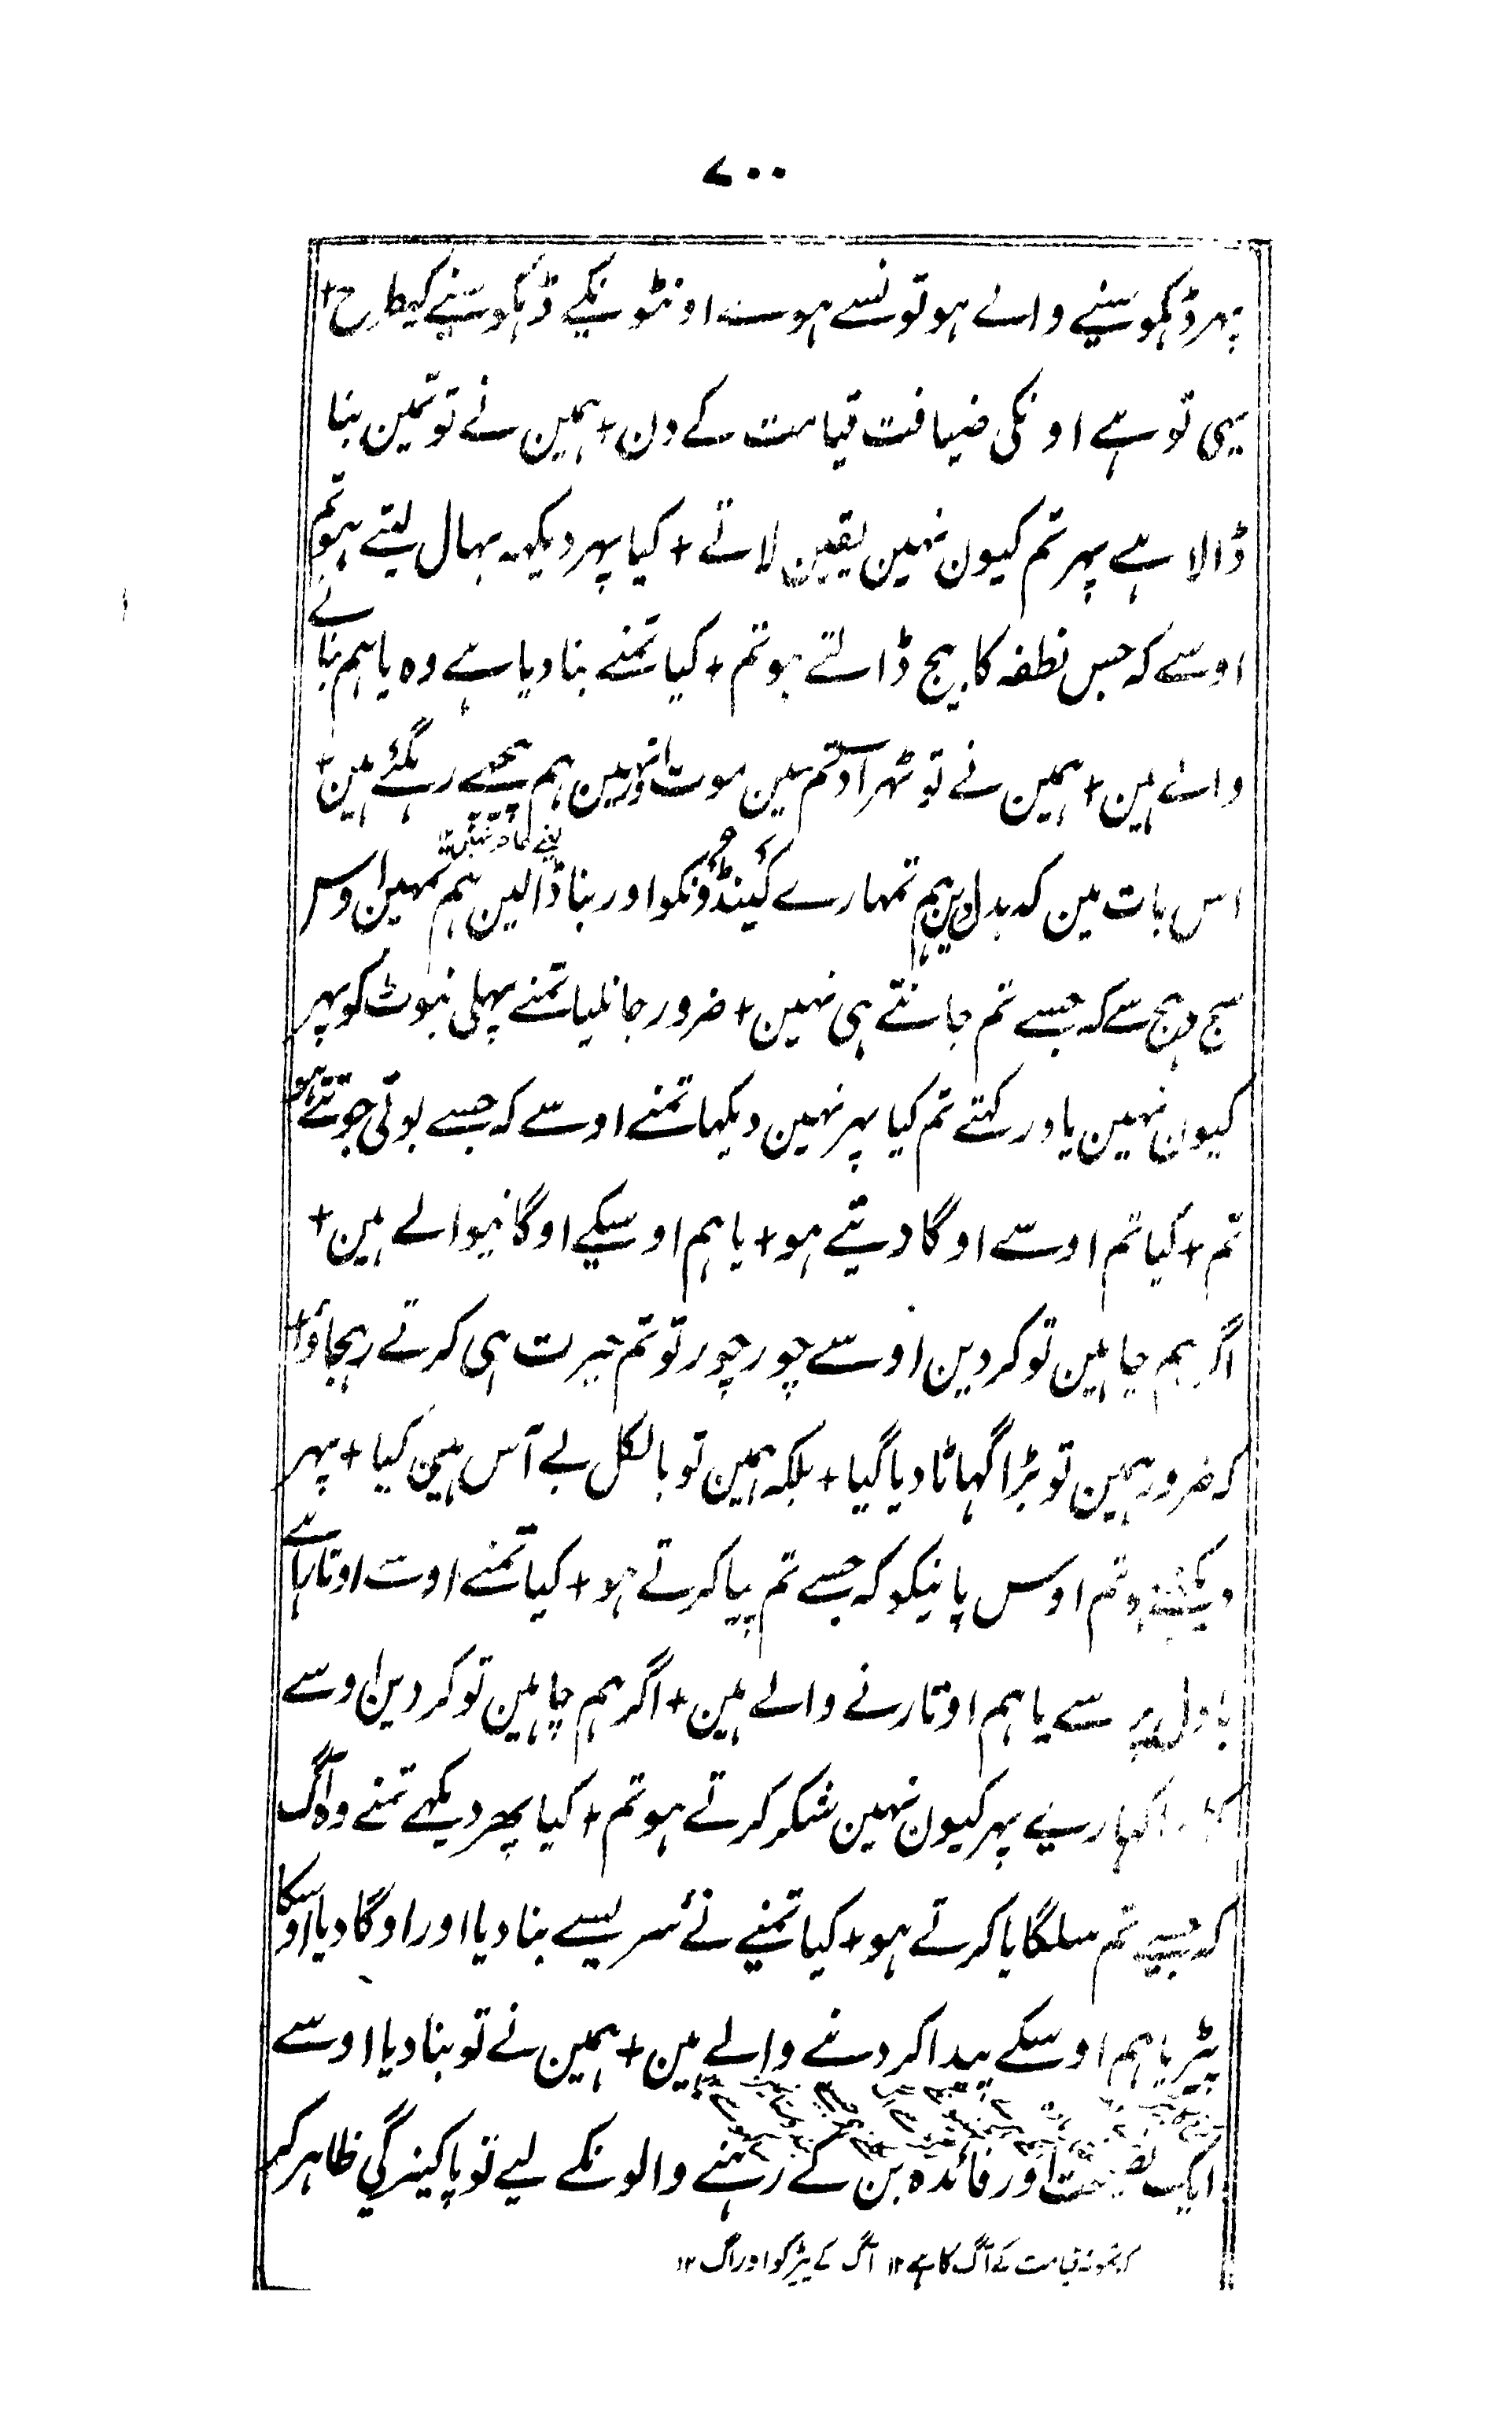 ۷۰۰
پہر ڈہکوسنے والے ہو تونسے ہوے اونٹونکے ڈہکوسنے کیطرح+
یہی تو ہے اونکی ضیافت قیامت کے دن+ ہمین نے تو تمین بنا
ڈالا ہے پہر تم کیون نہین یقین لاتے+ کیا پہر دیکہہ بہال لیتے ہو تم
اوسے کہ جس نطفہ کا بیج ڈالتے ہو تم+ کیا تمنے بنا دیا ہے وہ یا ہم بنانے
والے ہین+ ہمین نے تو ٹہرا دی تم مین موت اور نہین ہم پیچھے رہگئے ہین+
اس بات مین کہ بدل دین ہم تمہارے گینڈونکو اور بنا ڈالین ہم تمہین اوس
سج دہج سے کہ جسے تم جانتے ہی نہین+ ضرور جانلیا تمنے پہلی نبوٹ کو پہر
کیون نہین یاد رکہتے تم کیا پہر نہین دیکہا تمنے اوسے کہ جسے بوتی جوتتے ہو
تم+ کیا تم اوسے اوگا دیتے ہو+ یا ہم اوسیکے اوگانیوالے ہین+
اگر ہم چاہین تو کر دین اوسے چور چور تو تم حیرت ہی کرتے رہجاؤ+
کہ ضرور ہمین تو بڑا گہاٹا دیا گیا+ بلکہ ہمین تو بالکل بے آس ہی کیا+ پہر
دیکہتے ہو تم اوس پانیکو کہ جسے تم پیا کرتے ہو+ کیا تمنے اوسے اوتارا ہے
بادل پر سے یا ہم اوتارنے والے ہین+ اگر ہم چاہین تو کر دین اوسے
کہارے پہر کیون نہین شکر کرتے ہو تم+ کیا پھر دیکہے تمنے وہ آگ
کہ جسے تم سلگایا کرتے ہو+ کیا تمنے نئے سریسے بنا دیا اور اوگا دیا اوسکا
پٹر یا ہم اوسکے پیدا کر دینے والے ہین+ ہمین نے تو بنا دیا اوسے
ایک نصیحت اور فائدہ بن کے رہنے والونکے لیے تو پاکیزگی ظاہر کر
کہ نمونہ قیامت کے آگ کا ہے ۱۲ آگ کے پیڑ کو اور آگ ۱۲